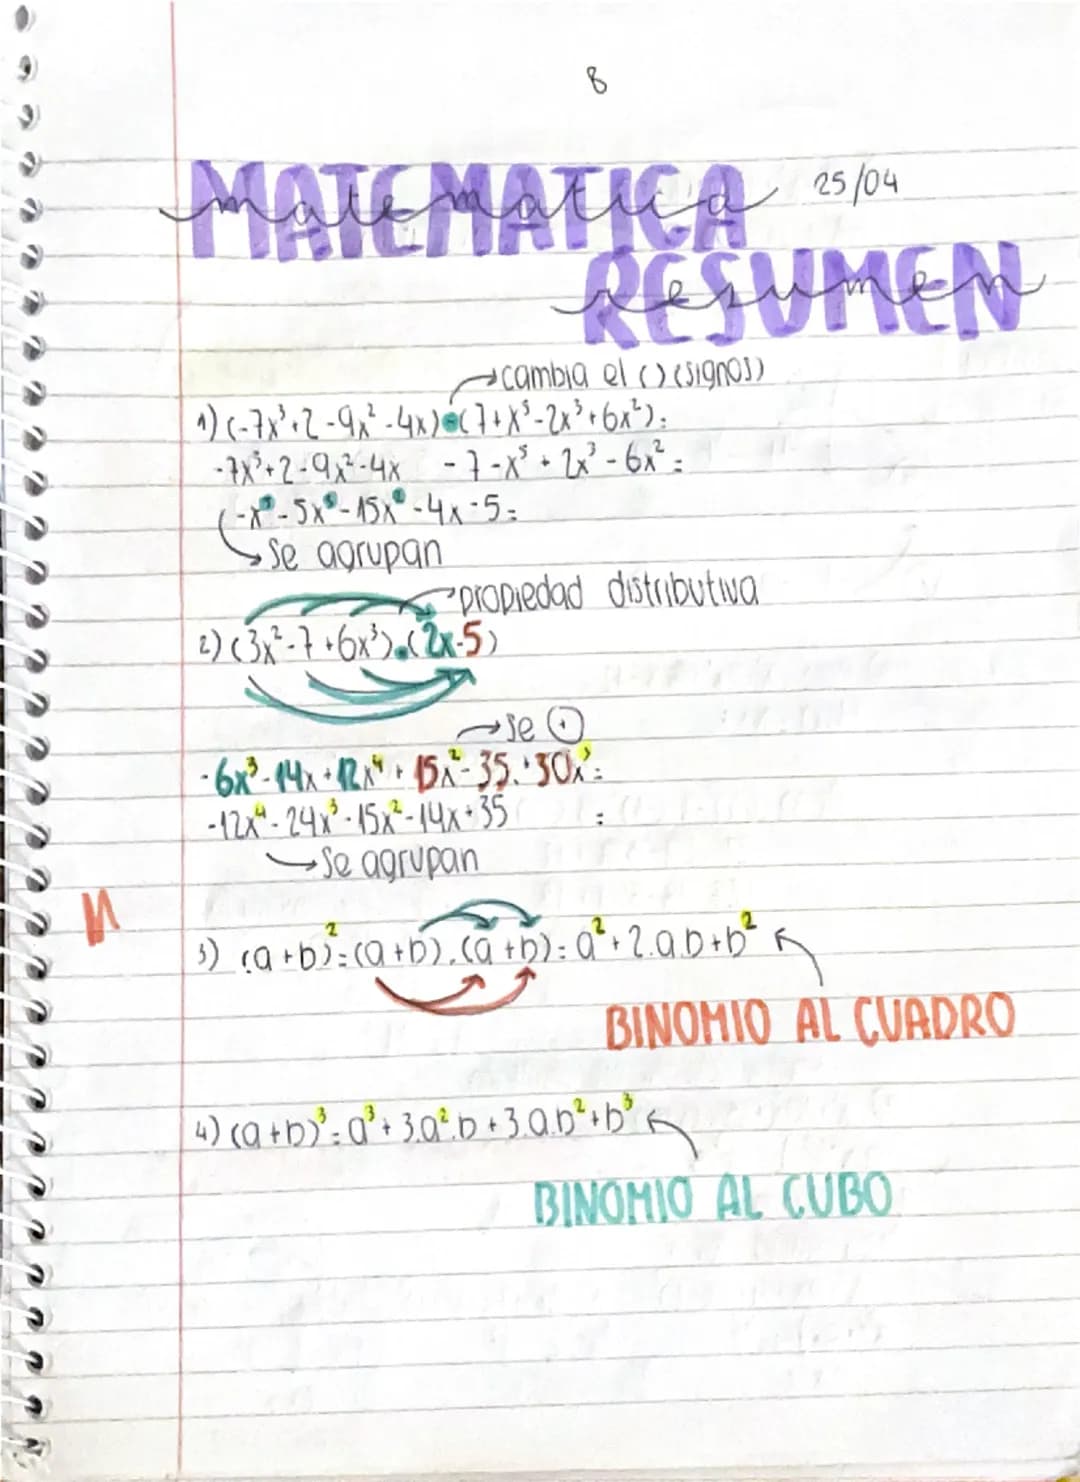 8
MATEMATICA
matematica 25/04
RESUMEN
resumen
→cambia el () (signos)
1) (-7x³+2-9x²-4x)-(7+x⁵-2x³+6x²)=
-7x³+2-9x²-4x -7-x⁵+2x³-6x²=
(-x⁵-5x³-15x²-4x-5=
→Se agrupan
→propiedad distributiva
2) (3x²-7+6x³).(2x-5)
→se (·)
-6x³-14x+12x⁴+15x²-35.+30x³=
-12x⁴-24x³-15x²-14x+35 =
→Se agrupan
3) (a+b)²=(a+b).(a+b)=a²+2.a.b+b²
BINOMIO AL CUADRO
4) (a+b)³=a³+3.a².b+3.a.b²+b³
BINOMIO AL CUBO